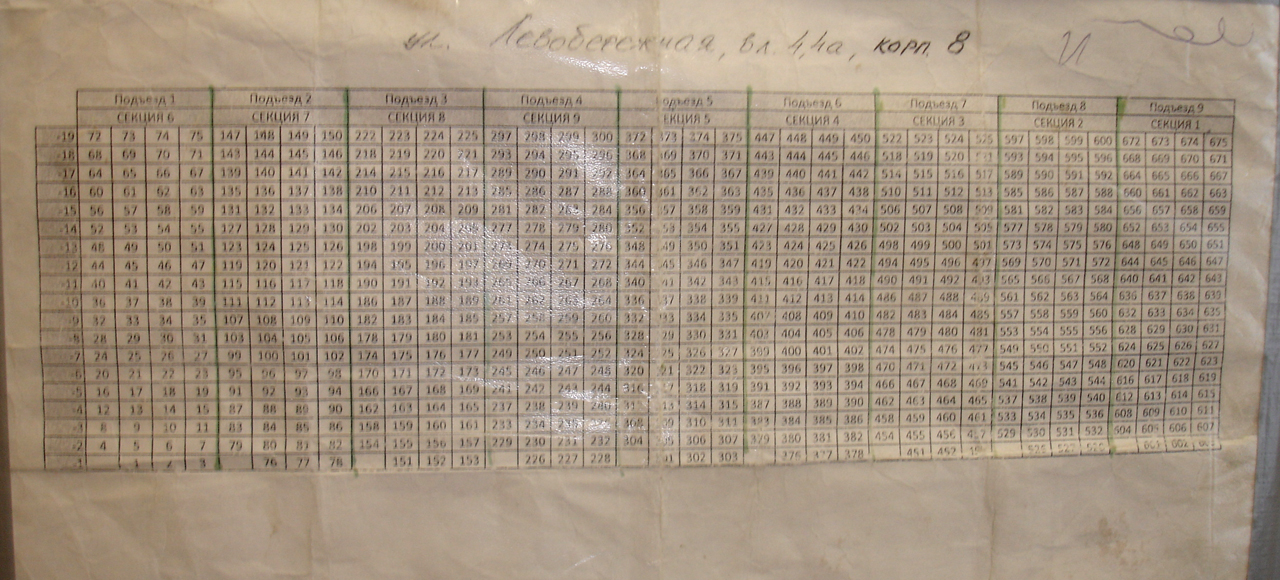 ул. Левобережная, вл. 4,4а, корп. 8
Подъезд 1 Подъезд 2 Подъезд 3 Подъезд 4 одъезд 5 Подъезд 6 Подъезд 7 Подъезд 8 Подъезд 9
СЕКЦИЯ 6 СЕКЦИЯ 7 СЕКЦИЯ 8 СЕКЦИЯ 9 ЕКЦИЯ 5 СЕКЦИЯ 4 СЕКЦИЯ 3 СЕКЦИЯ 2 СЕКЦИЯ 1
19 72 73 74 75 147 148 149 150 222 223 224 225 297 298 299 300 372 373 374 375 447 448 449 450 522 523 524 525 597 598 599 600 672 673 674 675
18 68 69 70 71 143 144 145 146 218 219 220 221 293 294 295 296 368 369 370 371 443 444 445 446 518 519 520 593 594 595 596 668 669 670 671
17 64 65 66 67 139 140 141 142 214 215 216 217 289 290 291 292 364 365 366 367 439 440 441 442 514 515 516 517 589 590 591 592 664 665 666 667
16 60 61 62 63 135 136 137 138 210 211 212 213 285 286 287 288 360 361 362 363 435 436 437 438 510 511 512 513 585 586 587 588 660 661 662 663
15 56 57 58 59 131 132 133 134 206 207 208 209 281 282 283 284 356 357 358 359 431 432 433 434 506 507 508 509 581 582 583 584 656 657 658 659
14 52 53 54 55 127 128 129 130 202 203 204 205 277 278 279 280 352 353 354 355 427 428 429 430 502 503 504 505 577 578 579 580 652 653 654 655
13 48 49 50 51 123 124 125 126 198 199 200 201 273 274 275 276 348 349 350 351 423 424 425 426 498 499 500 501 573 574 575 576 648 649 650 651
12 44 45 46 47 119 120 121 122 194 195 196 197 269 270 271 272 344 345 346 347 419 420 421 422 494 495 496 497 569 570 571 572 644 645 646 647
11 40 41 42 43 115 116 117 118 190 191 192 193 265 266 267 268 340 341 342 343 415 416 417 418 490 491 492 493 565 566 567 568 640 641 642 643
10 36 37 38 39 111 112 113 114 186 187 188 189 261 262 263 264 336 337 338 339 411 412 413 414 486 487 488 489 561 562 563 564 636 637 638 639
9 32 33 34 35 107 108 109 110 182 183 184 185 257 258 259 260 332 333 334 335 407 408 409 410 482 483 484 485 557 558 559 560 632 633 634 635
8 28 29 30 31 103 104 105 106 178 179 180 181 253 254 255 256 328 329 330 331 403 404 405 406 478 479 480 481 553 554 555 556 628 629 630 631
7 24 25 26 27 99 100 101 102 174 175 176 177 249 250 251 252 324 325 326 327 399 400 401 402 474 475 476 477 549 550 551 552 624 625 626 627
6 20 21 22 23 95 96 97 98 170 171 172 173 245 246 247 248 320 321 322 323 395 396 397 398 470 471 472 473 545 546 547 548 620 621 622 623
5 16 17 18 19 91 92 93 94 166 167 168 169 241 242 243 244 316 317 318 319 391 392 393 394 466 467 468 469 541 542 543 544 616 617 618 619
4 12 13 14 15 87 88 89 90 162 163 164 165 237 238 239 240 312 313 314 315 387 388 389 390 462 463 464 465 537 538 539 540 612 613 614 615
3 8 9 10 11 83 84 85 86 158 159 160 161 233 234 235 236 308 309 310 311 383 384 385 386 458 459 460 461 533 534 535 536 608 609 610 611
2 4 5 6 7 79 80 81 82 154 155 156 157 229 230 231 232 304 305 306 307 379 380 381 382 454 455 456 457 529 530 531 532 604 605 606 607
1 1 2 3 76 77 78 151 152 153 226 227 228 301 302 303 376 377 378 451 452 601 602 603